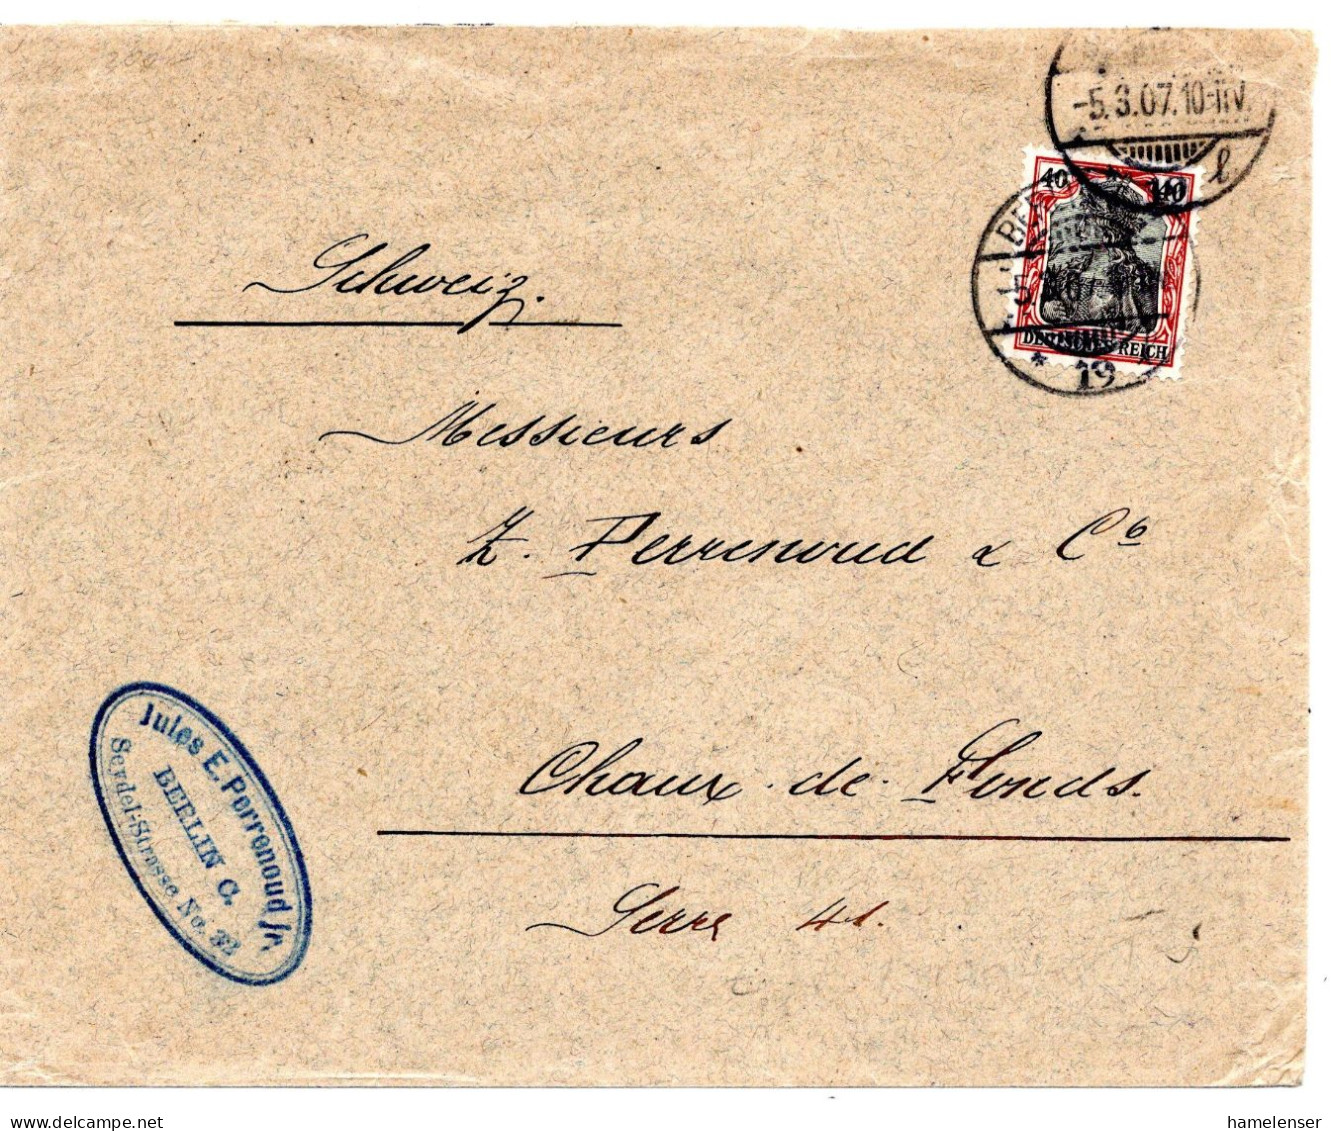 -5.3.07.10-11V.
l
40 40
DEUTSCHES REICH
19
Schweiz.
Messieurs
Z. Perrenoud & Co
Chaux-de-Fonds.
Serre 41.
Jules E. Perrenoud Jr.
BERLIN C.
Seydel-Strasse No. 32
www.delcampe.net
hamelenser